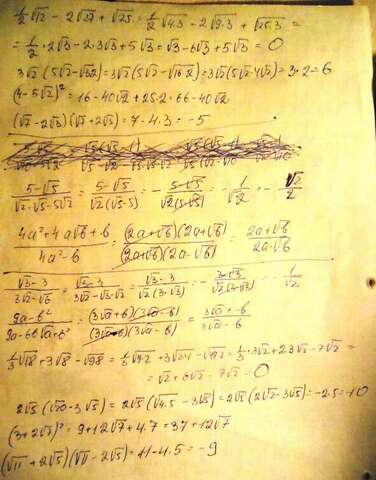 1/2 √12 - 2√27 + √75 = 1/2 √4.3 - 2√9.3 + √25.3 =
= 1/2 · 2√3 - 2.3√3 + 5√3 = √3 - 6√3 + 5√3 = 0
3√2 (5√2 - √32) = 3√2 (5√2 - √16.2) = 3√2 (5√2 - 4√2) = 3·2 = 6
(4 - 5√2)² = 16 - 40√2 + 25.2 = 66 - 40√2
(√7 - 2√3)(√7 + 2√3) = 7 - 4.3 = -5
(5-√5)/(√2·√5 - 5√2) = (5-√5)/(√2(√5-5)) = - (5-√5)/(√2(5-√5)) = - 1/√2 = - √2/2
(4a² + 4a√b + b)/(4a² - b) = (2a+√b)(2a+√b)/((2a+√b)(2a-√b)) = (2a+√b)/(2a-√b)
(√3 - 3)/(3√2 - √6) = (√3 - 3)/(3√2 - √3·√2) = (√3 - 3)/(√2(3-√3)) = - (3-√3)/(√2(3-√3)) = - 1/√2
1/3 √18 + 3√8 - √98 = 1/3 √9.2 + 3√2.4 - √49.2 = 1/3 · 3√2 + 2.3√2 - 7√2 =
= √2 + 6√2 - 7√2 = 0
2√5 (√20 - 3√5) = 2√5 (√4.5 - 3√5) = 2√5 (2√5 - 3√5) = -2.5 = -10
(3 + 2√7)² = 9 + 12√7 + 4.7 = 37 + 12√7
(√11 + 2√5)(√11 - 2√5) = 11 - 4.5 = -9